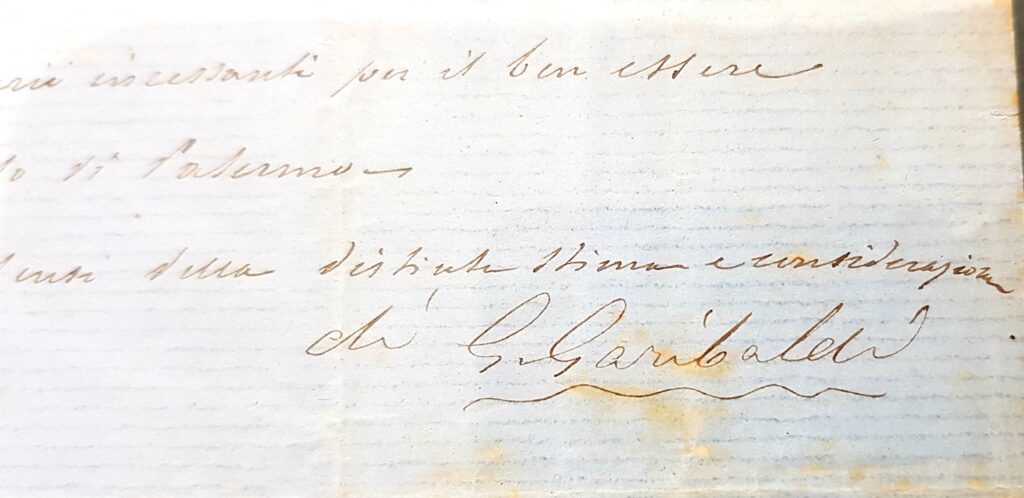 incessanti per il ben essere
di Palermo
sensi della distinta stima e considerazione
di G Garibaldi